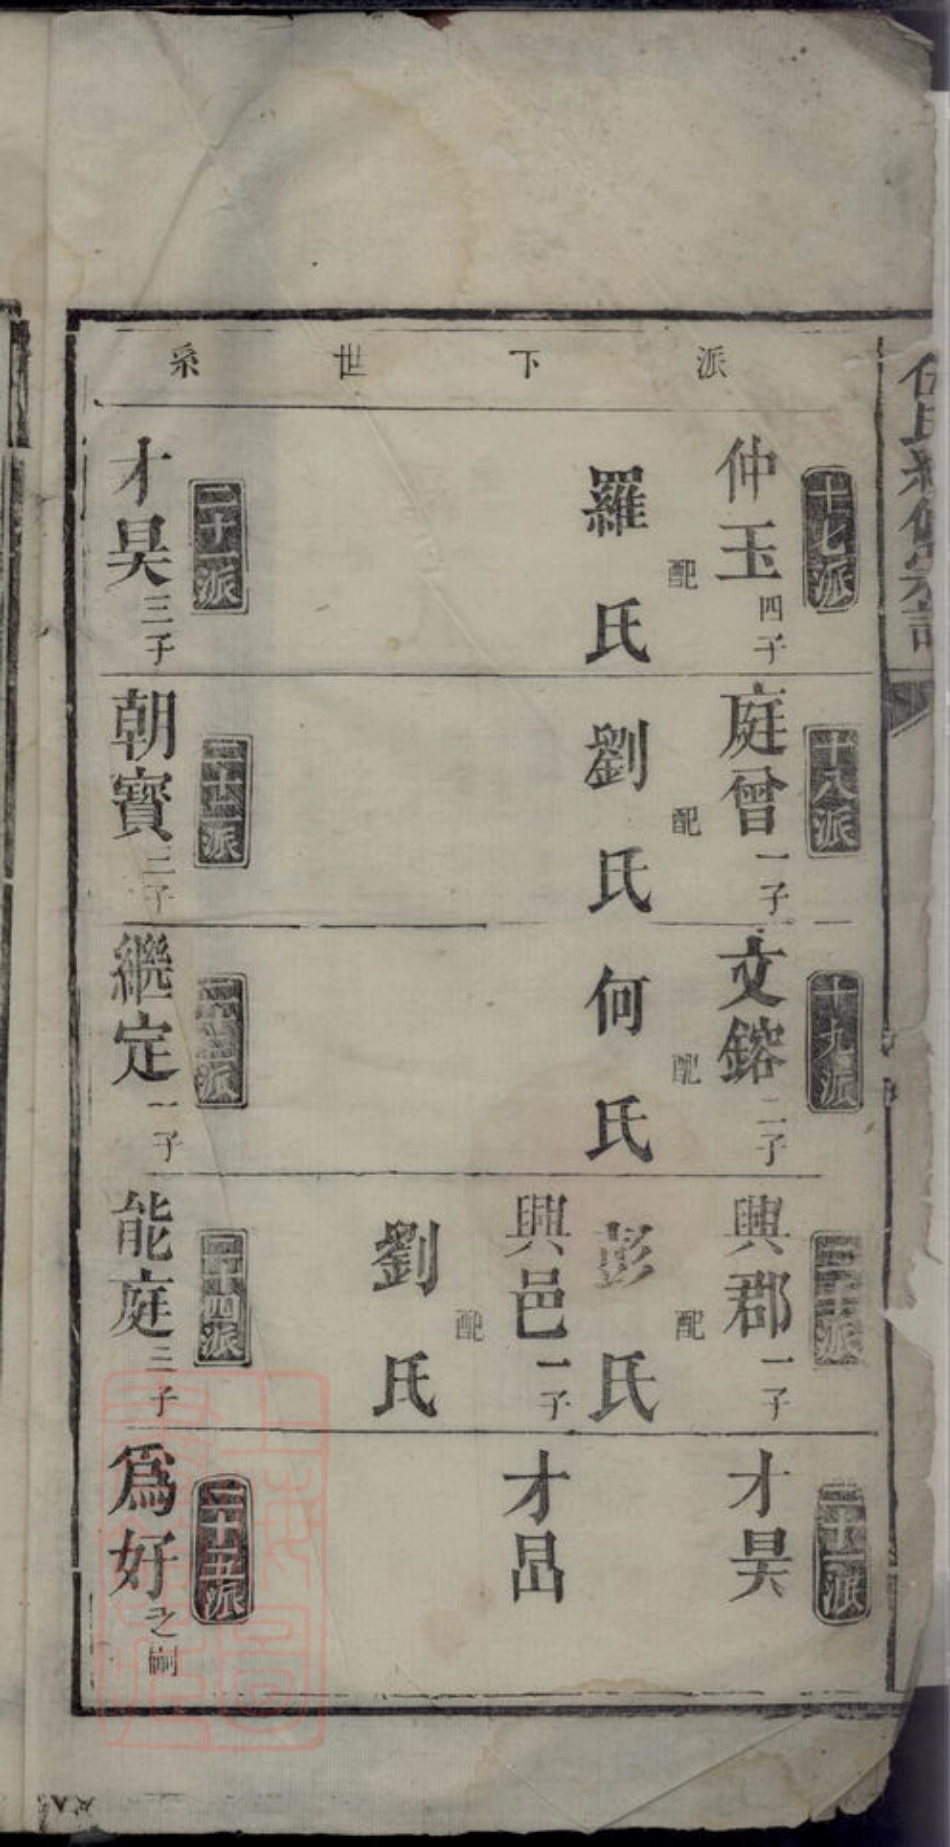 伍氏
派下世系
十七派
仲玉 四子
配
羅氏
十八派
庭曾 一子
配
劉氏
十九派
文鎔 二子
配
何氏
二十派
興郡 一子
配
彭氏
興邑 一子
配
劉氏
二十一派
才昊
才昌
二十一派
才昊 三子
二十二派
朝寶 二子
二十三派
繼定 一子
二十四派
能庭 二子
二十五派
爲好 之嗣